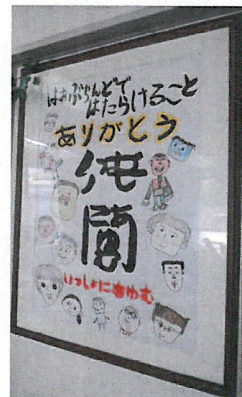 はぁぶらんどで
はたらけること
ありがとう
いっしょにあゆむ